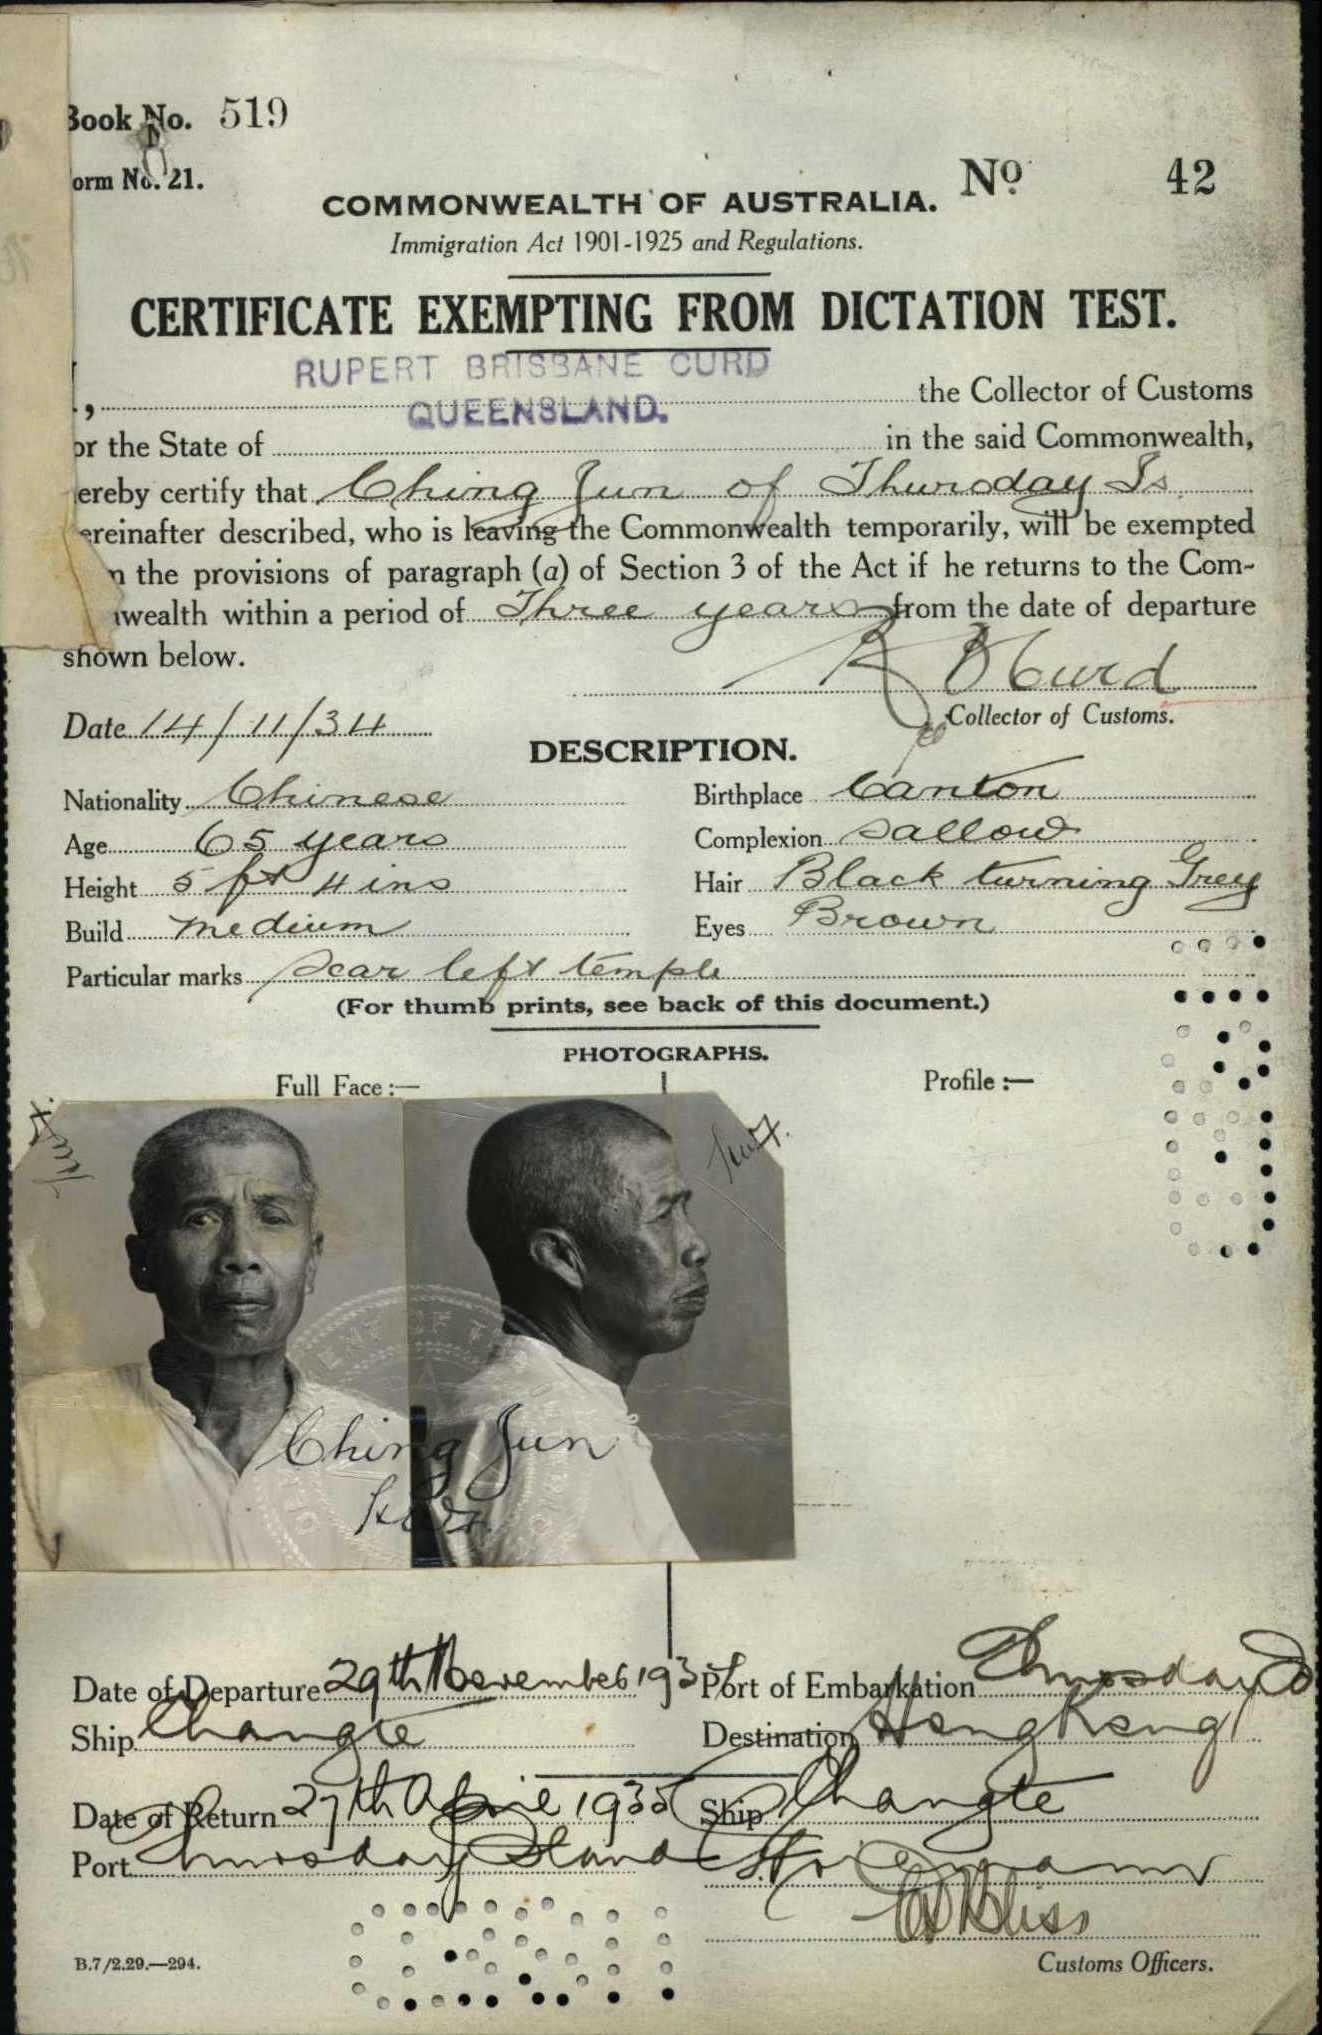 Book No. 519
orm No. 21.
No. 42
COMMONWEALTH OF AUSTRALIA.
Immigration Act 1901-1925 and Regulations.
CERTIFICATE EXEMPTING FROM DICTATION TEST.
RUPERT BRISBANE CURD
I, the Collector of Customs
QUEENSLAND.
or the State of in the said Commonwealth,
ereby certify that Ching Jun of Thursday Is.
ereinafter described, who is leaving the Commonwealth temporarily, will be exempted
m the provisions of paragraph (a) of Section 3 of the Act if he returns to the Com-
wealth within a period of Three years from the date of departure
shown below.
R B Curd
Collector of Customs.
Date 14/11/34
DESCRIPTION.
Nationality Chinese Birthplace Canton
Age 65 years Complexion Sallow
Height 5 ft 4 ins Hair Black turning Grey
Build medium Eyes Brown
Particular marks Scar left temple
(For thumb prints, see back of this document.)
PHOTOGRAPHS.
Full Face:— Profile:—
Ching Jun
Date of Departure 29th November 193 Port of Embarkation Thursday Is
Ship Changte Destination HongKong
Date of Return 27th April 1935 Ship Changte
Port Thursday Island
Bliss
B.7/2.29.—294. Customs Officers.